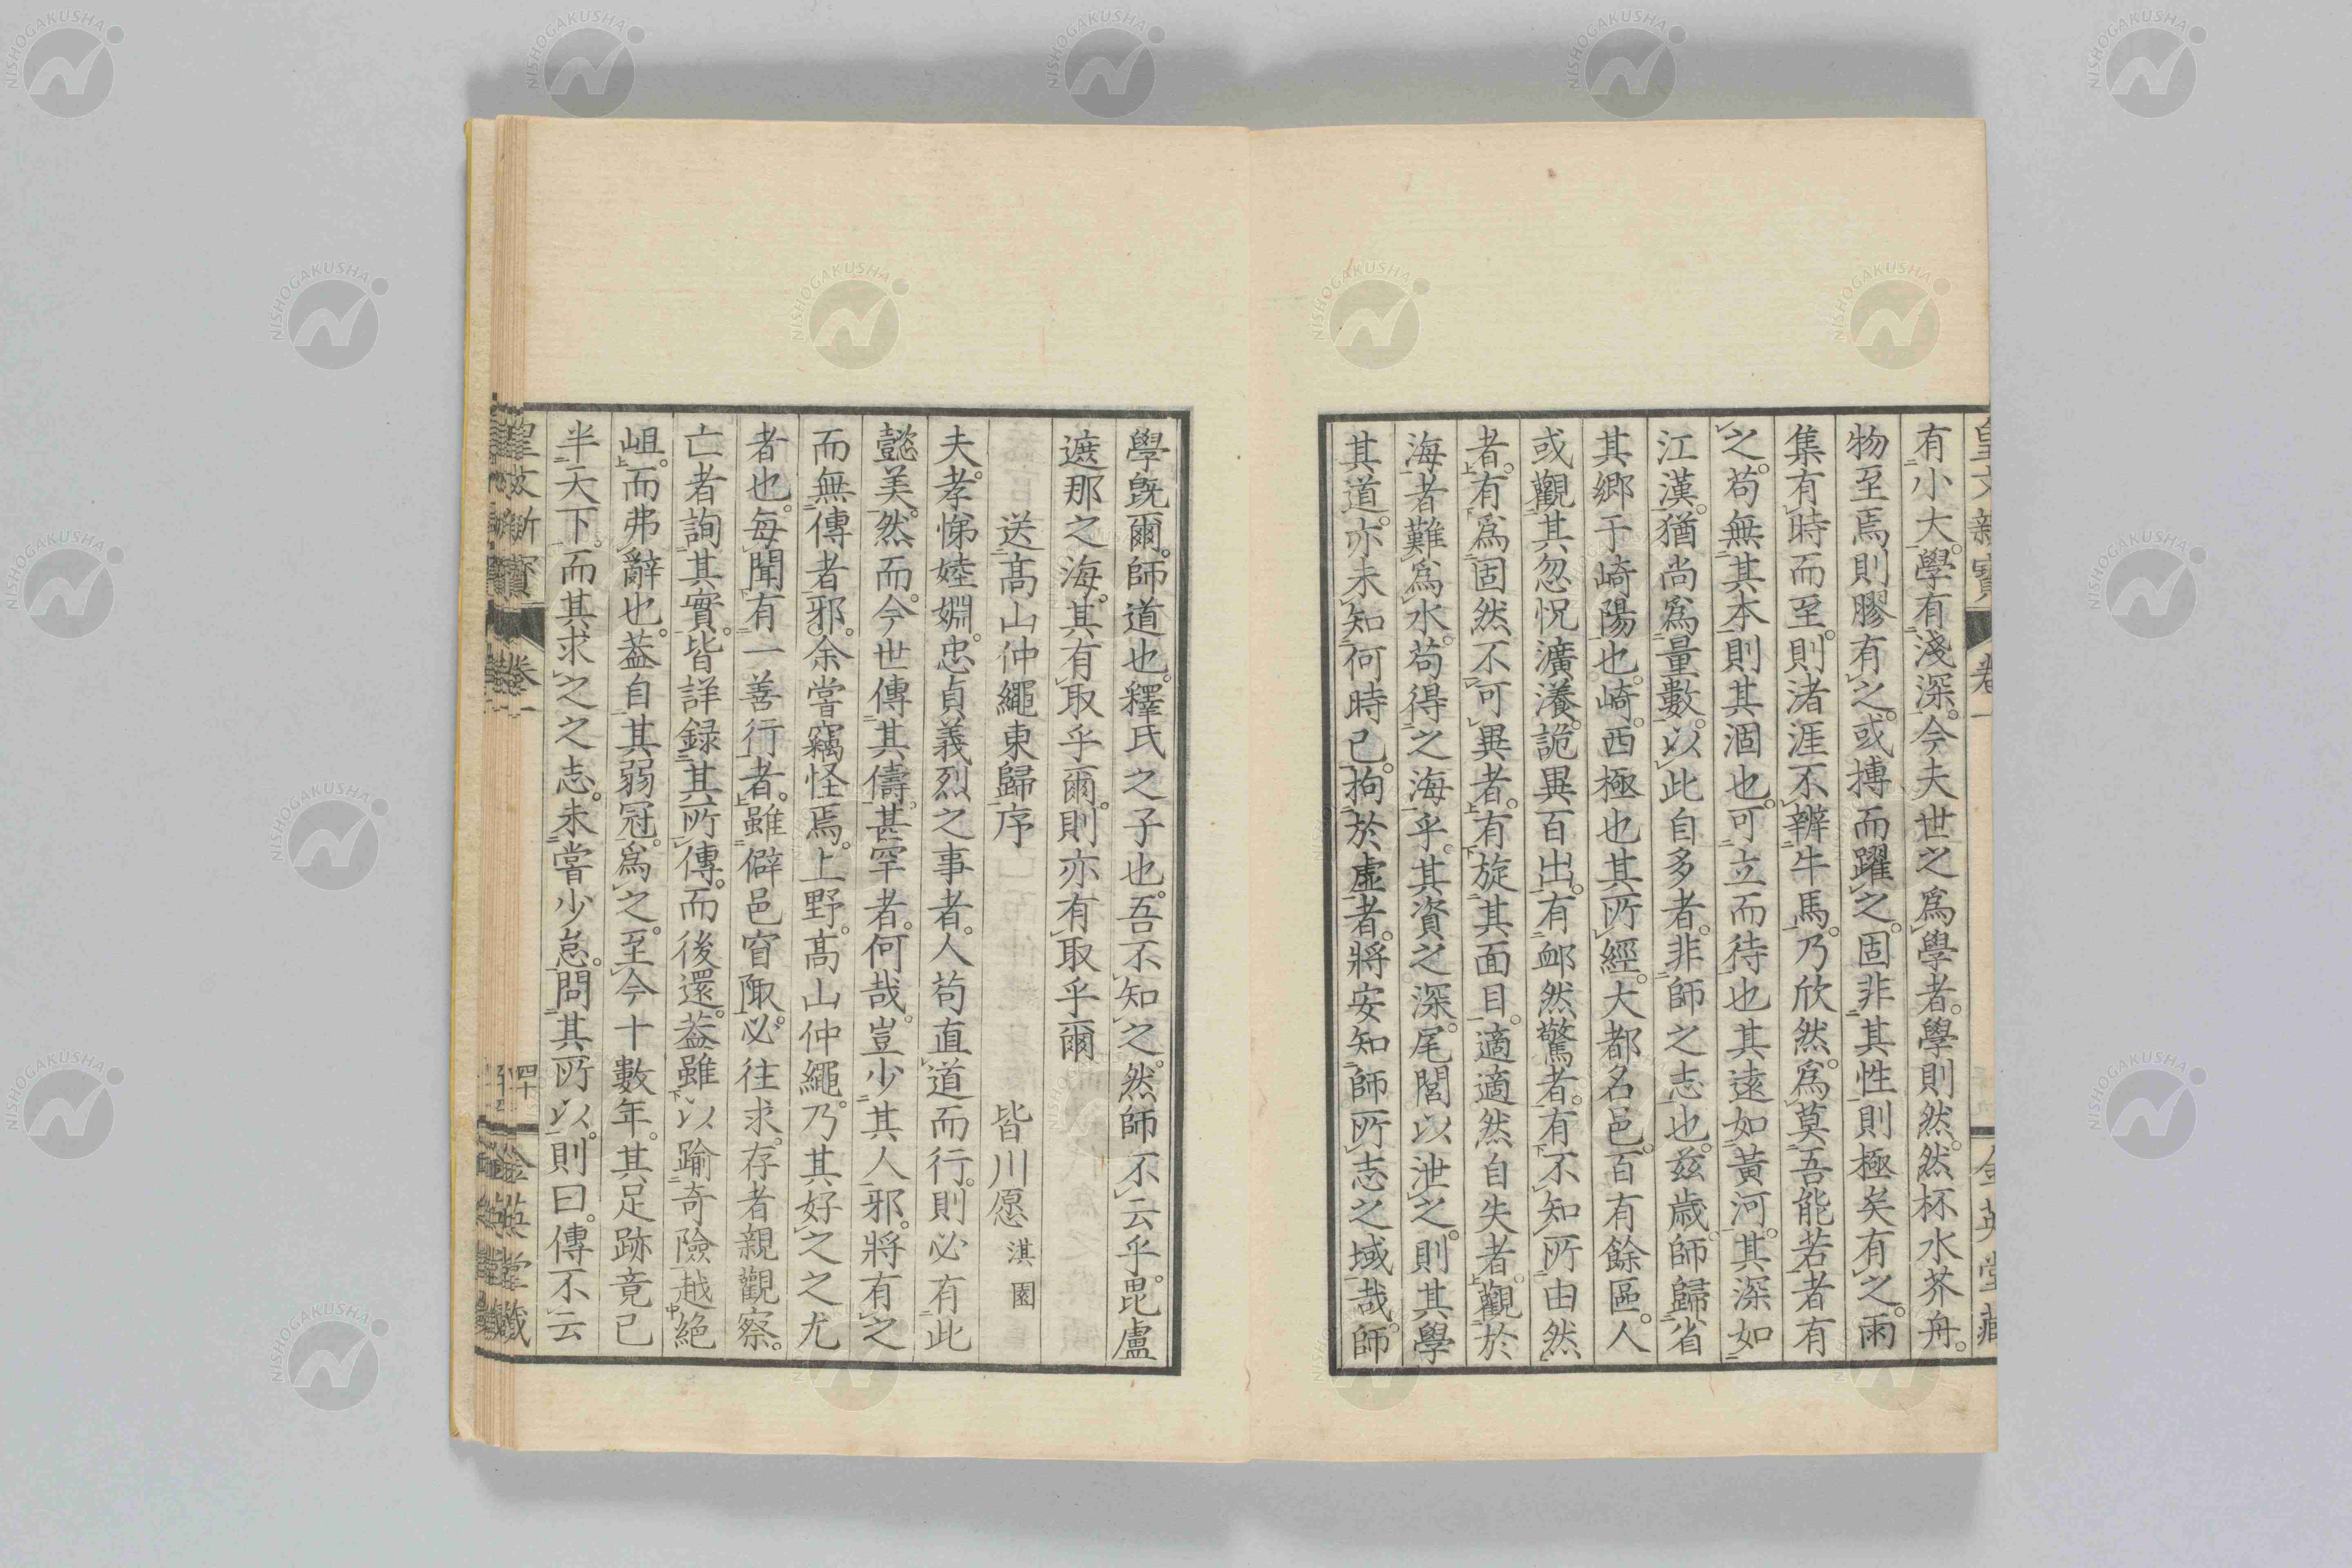 有小大。學有淺深。今夫世之爲學者。學則然。然杯水芥舟。
物至焉則膠有之。或搏而躍之。固非其性則極矣有之。雨
集有時而至。則渚涯不辨牛馬。乃欣然。爲莫吾能若者有
之。苟無其本則其涸也。可立而待也其遠如黃河。其深如
江漢。猶尚爲量數。以此自多者。非師之志也。兹歲師歸省
其鄉于崎陽也。崎。西極也其所經。大都名邑。百有餘區。人
或觀其忽怳瀇瀁。詭異百出。有衈然驚者。有不知所由然
者。有爲固然不可異者。有旋其面目。適適然自失者。觀於
海者難爲水。苟得之海乎。其資之深。尾閭以泄之。則其學
其道。亦未知何時已。拘於虛者。將安知師所志之域哉。師
學旣爾。師道也。釋氏之子也。吾不知之。然師不云乎。毘盧
遮那之海。其有取乎爾。則亦有取乎爾
送高山仲繩東歸序 皆川愿 淇園
夫孝悌婣睦。忠貞義烈之事者。人苟直道而行。則必有此
懿美。然而今世傳其儔。甚罕者。何哉。豈少其人邪。將有之
而無傳者邪。余嘗竊怪焉。上野。高山仲繩。乃其好之之尤
者也。每聞有一善行者。雖僻邑窅陬。必往求。存者親觀察。
亡者詢其實。皆詳録其所傳。而後還。葢雖以踰奇險越絕
岨。而弗辭也。葢自其弱冠。爲之。至今十數年。其足跡竟已
半天下。而其求之之志。未嘗少怠。問其所以。則曰。傳不云
皇文新寶 卷一 四十 金英堂藏